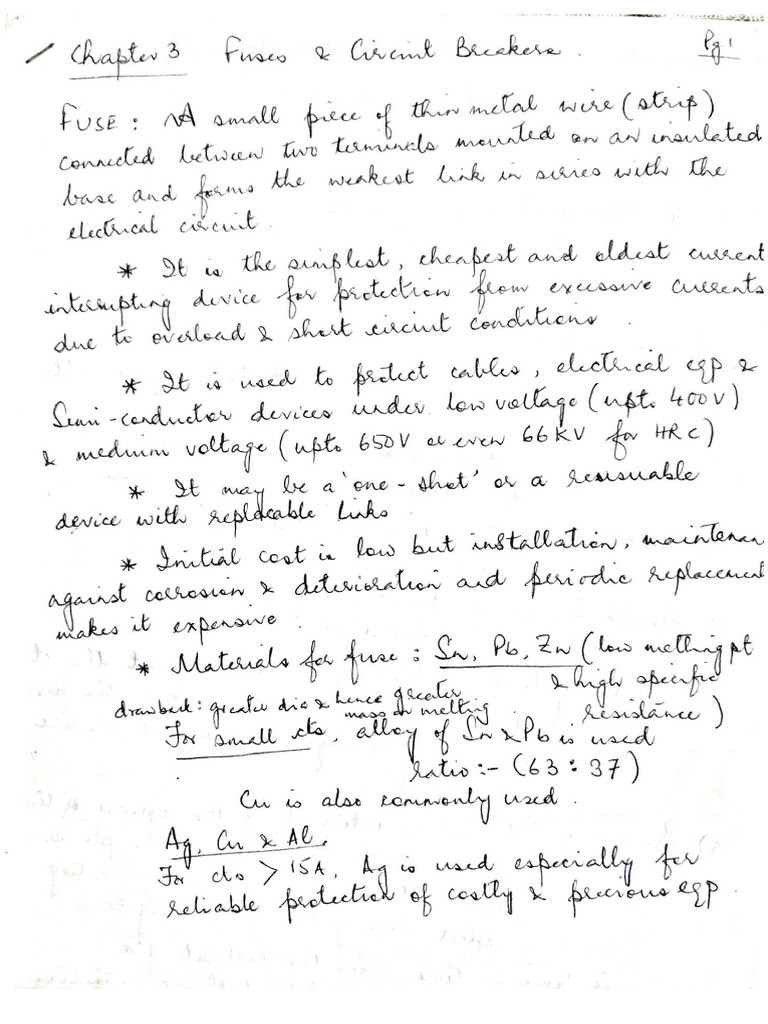 Chapter 3 Fuses & Circuit Breakers. Pg 1
FUSE : A small piece of thin metal wire (strip)
connected between two terminals mounted on an insulated
base and forms the weakest link in series with the
electrical circuit.
* It is the simplest, cheapest and oldest current
interrupting device for protection from excessive currents
due to overload & short circuit conditions.
* It is used to protect cables, electrical eqp &
Semi-conductor devices under low voltage (upto 400V)
& medium voltage (upto 650V or even 66KV for HRC)
* It may be a 'one-shot' or a
device with replacable links
* Initial cost is low but installation, maintenan
against corrosion & deterioration and periodic replacement
makes it expensive.
* Materials for fuse : Sn, Pb, Zn (low melting pt
& high specific
resistance)
drawback : greater dia & hence greater
mass on melting.
For small cts, alloy of Sn & Pb is used
ratio :- (63 : 37)
Cu is also commonly used.
Ag, Cu & Al.
For cts > 15A, Ag is used especially for
reliable protection of costly & precious eqp.